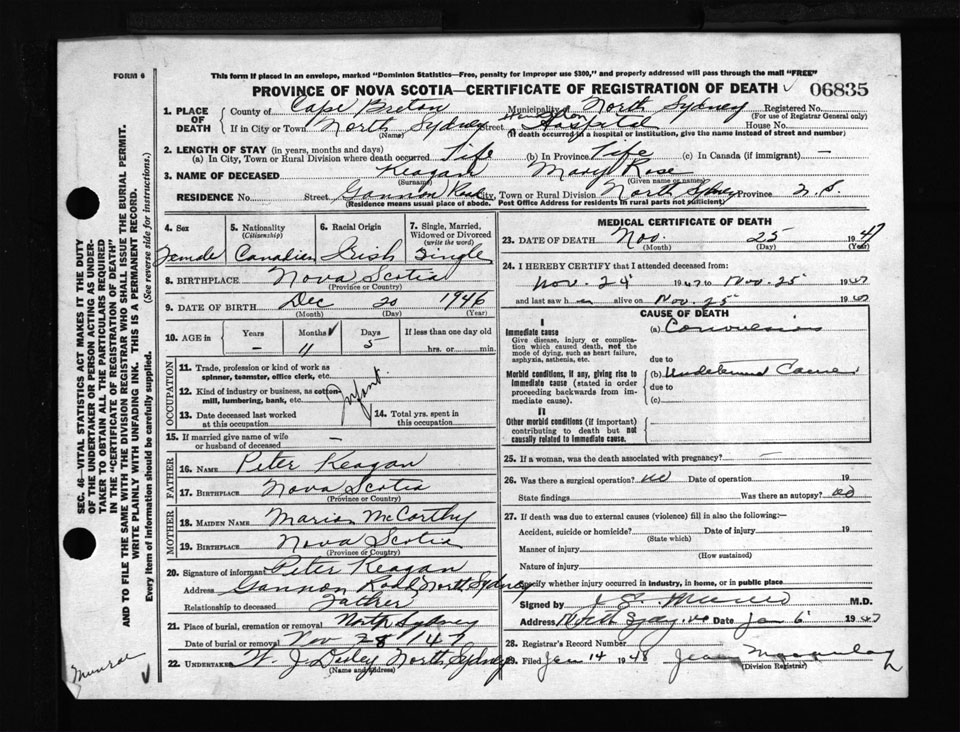 FORM 6
This form if placed in an envelope, marked "Dominion Statistics—Free, penalty for improper use $300," and properly addressed will pass through the mail "FREE"
PROVINCE OF NOVA SCOTIA—CERTIFICATE OF REGISTRATION OF DEATH 06835
1. PLACE OF DEATH County of Cape Breton Municipality of North Sydney Registered No.
(For use of Registrar General only)
If in City or Town North Sydney Street Hospital House No.
(Name) (If death occurred in a hospital or institution, give the name instead of street and number)
2. LENGTH OF STAY (in years, months and days)
(a) In City, Town or Rural Division where death occurred Life (b) In Province Life (c) In Canada (if immigrant) —
3. NAME OF DECEASED Keagan Mary Rose
(Surname) (Given name or names)
RESIDENCE No. Street Gannon Road City, Town or Rural Division North Sydney Province N.S.
(Residence means usual place of abode. Post Office Address for residents in rural parts not sufficient)
4. Sex 5. Nationality (Citizenship) 6. Racial Origin 7. Single, Married, Widowed or Divorced (write the word)
Female Canadian Irish Single
8. BIRTHPLACE Nova Scotia
(Province or Country)
9. DATE OF BIRTH Dec 20 1946
(Month) (Day) (Year)
10. AGE in Years Months Days If less than one day old
— 11 5 hrs. or min.
OCCUPATION
11. Trade, profession or kind of work as spinner, teamster, office clerk, etc.
12. Kind of industry or business, as cotton-mill, lumbering, bank, etc.
Infant
13. Date deceased last worked at this occupation
14. Total yrs. spent in this occupation
15. If married give name of wife or husband of deceased —
FATHER
16. NAME Peter Keagan
17. BIRTHPLACE Nova Scotia
(Province or Country)
MOTHER
18. MAIDEN NAME Marion McCarthy
19. BIRTHPLACE Nova Scotia
(Province or Country)
20. Signature of informant Peter Keagan
Address Gannon Road North Sydney
Relationship to deceased Father
21. Place of burial, cremation or removal North Sydney
Date of burial or removal Nov 28 '47
22. UNDERTAKER W. J. Dooley North Sydney
(Name and Address)
MEDICAL CERTIFICATE OF DEATH
23. DATE OF DEATH Nov. 25 1947
(Month) (Day) (Year)
24. I HEREBY CERTIFY that I attended deceased from:
Nov. 24 1947 to Nov. 25 1947
and last saw her alive on Nov. 25 1947
CAUSE OF DEATH
I
Immediate cause
Give disease, injury or complication which caused death, not the mode of dying, such as heart failure, asphyxia, asthenia, etc.
(a) Convulsions
due to
Morbid conditions, if any, giving rise to immediate cause (stated in order proceeding backwards from immediate cause.)
(b) Undetermined Cause
due to
(c)
II
Other morbid conditions (if important) contributing to death but not causally related to immediate cause.
25. If a woman, was the death associated with pregnancy? —
26. Was there a surgical operation? no Date of operation 19
State findings Was there an autopsy? no
27. If death was due to external causes (violence) fill in also the following:—
Accident, suicide or homicide? Date of injury 19
(State which)
Manner of injury
(How sustained)
Nature of injury
Specify whether injury occurred in industry, in home, or in public place
Signed by M.D.
Address Date Jan 6 1947
28. Registrar's Record Number
29. Filed Jan 14 1948
(Division Registrar)
SEC. 46—VITAL STATISTICS ACT MAKES IT THE DUTY OF THE UNDERTAKER OR PERSON ACTING AS UNDERTAKER TO OBTAIN ALL THE PARTICULARS REQUIRED IN THE "CERTIFICATE OF REGISTRATION OF DEATH" AND TO FILE THE SAME WITH THE DIVISION REGISTRAR WHO SHALL ISSUE THE BURIAL PERMIT.
WRITE PLAINLY WITH UNFADING INK. THIS IS A PERMANENT RECORD.
Every item of information should be carefully supplied. (See reverse side for instructions.)
Munroe